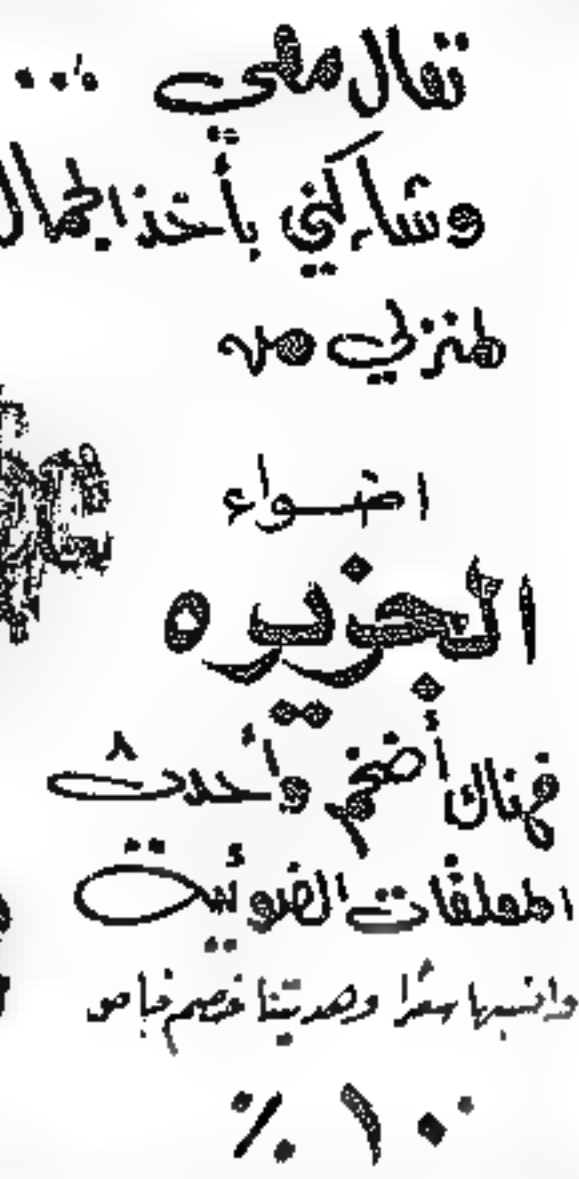 تعال معي ...
وشاركني بأخذ الجمال
لمنزلي من
اضواء
الجزيره
فهناك أضخم وأحدث
المعلقات الضوئية
وانسبها سعرا وهديتنا خصم خاص
١٠ ٪